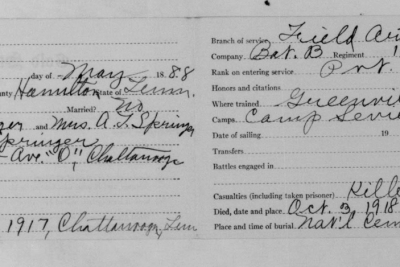 day of May 188.8
nty Hamilton State of Tenn.
Married? No
ger and Mrs. A. T. Springer
Springer
- Ave. "O", Chattanooga
1917, Chattanooga, Tenn
Branch of service Field Ar
Company Bat. B Regiment 1
Rank on entering service Pvt.
Honors and citations
Where trained Greenvil
Camps Camp Sevie
Date of sailing 19
Transfers
Battles engaged in
Casualties (including taken prisoner) Kille
Died, date and place. Oct. 3, 1918
Place and time of burial Nat'l Cem